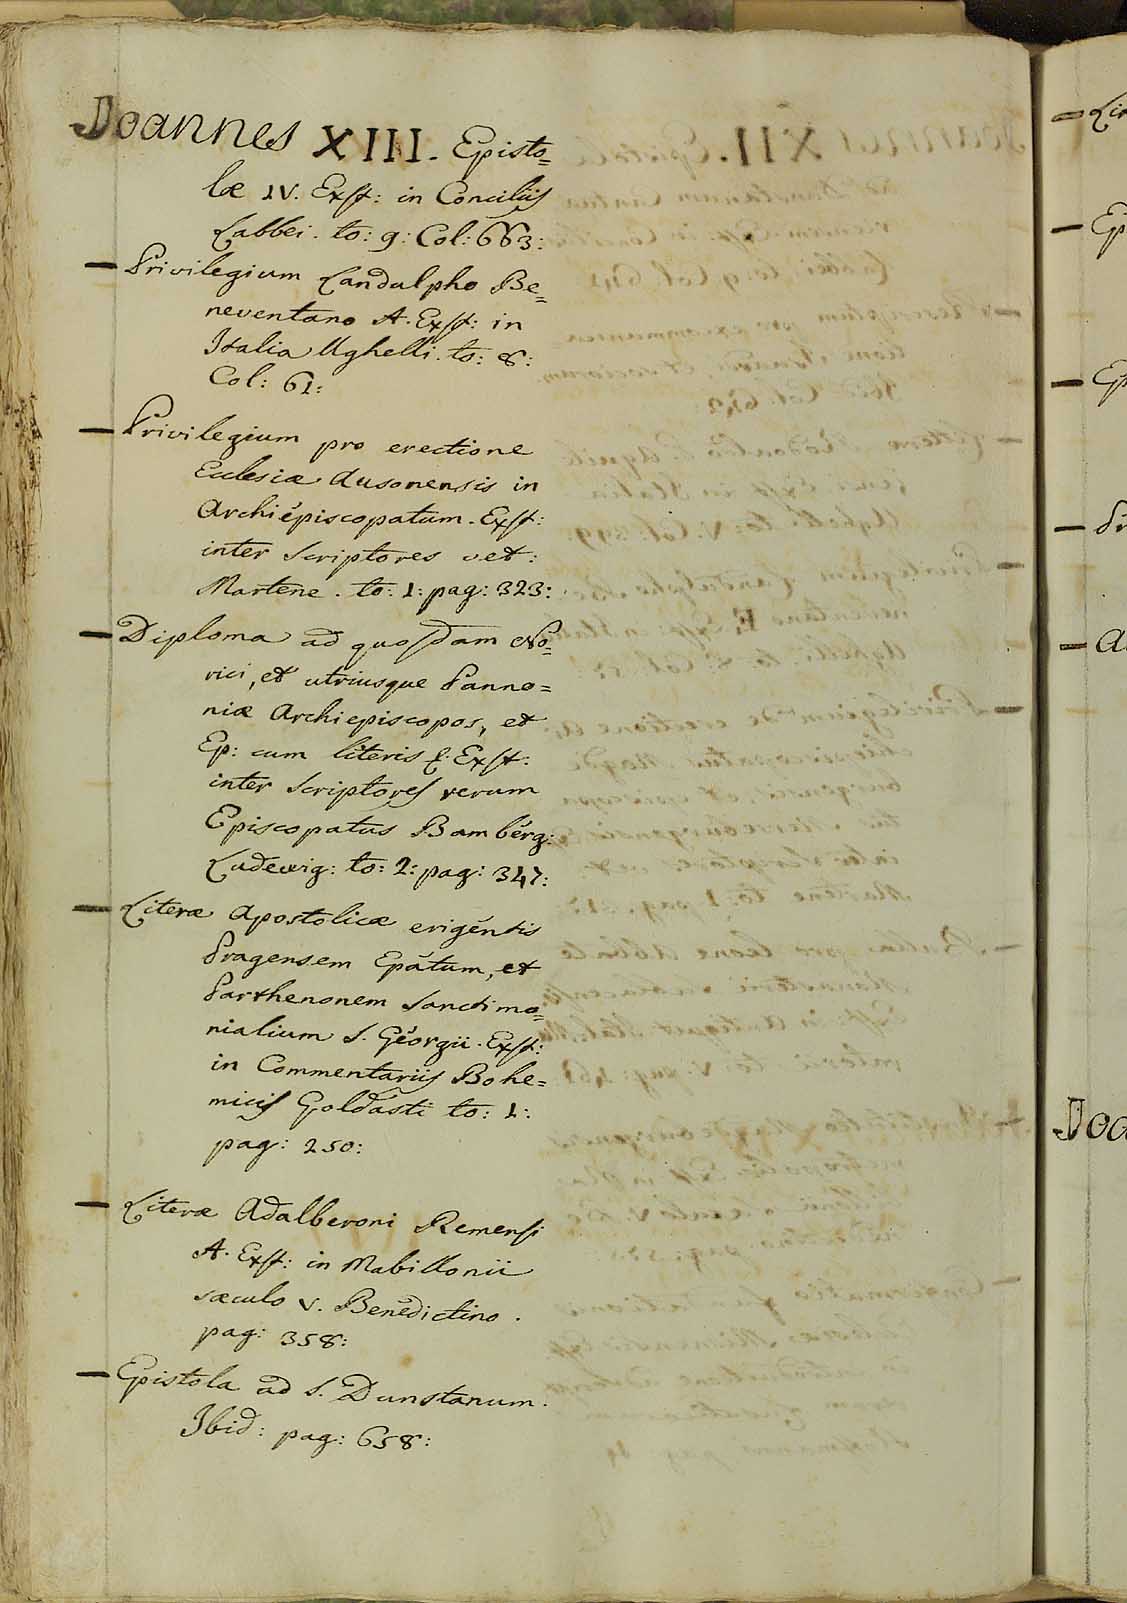 Joannes XIII. Episto=
læ IV. Exst: in Conciliis
Labbei. to: 9: Col: 663:
— Privilegium Landulpho Be=
neventano A. Exst: in
Italia Ughelli. to: 8:
Col: 61:
— Privilegium pro erectione
Ecclesiæ Ausonensis in
Archiepiscopatum. Exst:
inter Scriptores vet:
Martene. to: 1: pag: 323:
— Diploma ad quosdam No=
rici, et utriusque Panno=
niæ Archiepiscopos, et
Ep: cum literis Exst:
inter Scriptores rerum
Episcopatus Bamberg:
Ludewig: to: 2: pag: 347:
— Literæ Apostolicæ erigentis
Pragensem Epatum, et
Parthenonem Sanctimo=
nialium S. Georgii. Exst:
in Commentariis Bohe=
micis Goldasti to: 1:
pag: 250:
— Literæ Adalberoni Remensi
A. Exst: in Mabillonii
sæculo V. Benedictino.
pag: 358:
— Epistola ad S. Dunstanum.
Ibid: pag: 658: